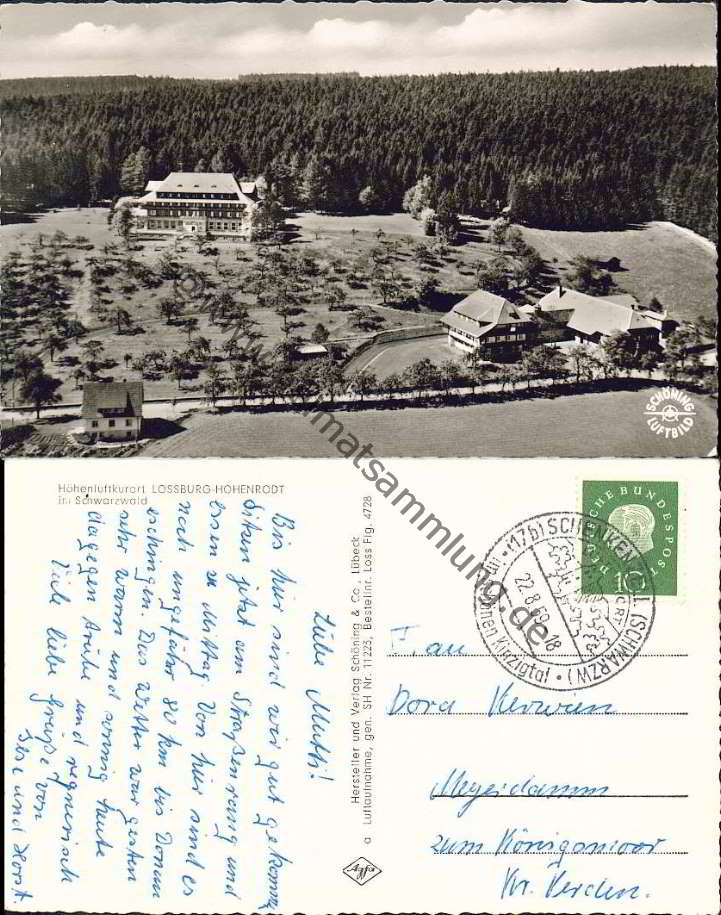 SCHÖNING
LUFTBILD
Höhenluftkurort LOSSBURG-HOHENRODT
im Schwarzwald
Liebe Mutti!
Bis hier sind wir gut gekommen,
sitzen jetzt am Straßenrang und
essen zu Mittag. Von hier sind es
noch ungefähr 80 km bis Donau
eschingen. Das Wetter war gestern
sehr warm und sonnig heute
dagegen trübe und regnerisch
Viele liebe Grüße von
und Horst
Hersteller und Verlag Schöning & Co., Lübeck
a Luftaufnahme, gen. SH Nr. 11225, Bestellnr. Loss Flg. 4728
Agfa
DEUTSCHE BUNDESPOST
10
(17b) SCHENKENZELL (SCHWARZW)
22.8.59-18
im schönen Kinzigtal
Frau
Dora
Meyerdamm
zum Königsmoor
Kr. Verden.
heimatsammlung.de